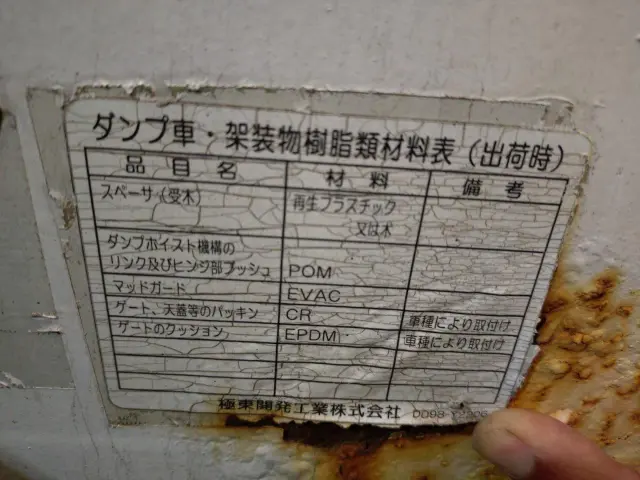 ダンプ車・架装物樹脂類材料表(出荷時)
品目名 材料 備考
スペーサ(受木) 再生プラスチック
又は木
ダンプホイスト機構の
リンク及びヒンジ部ブッシュ POM
マッドガード EVAC
ゲート、天蓋等のパッキン CR 車種により取付け
ゲートのクッション EPDM 車種により取付け
極東開発工業株式会社